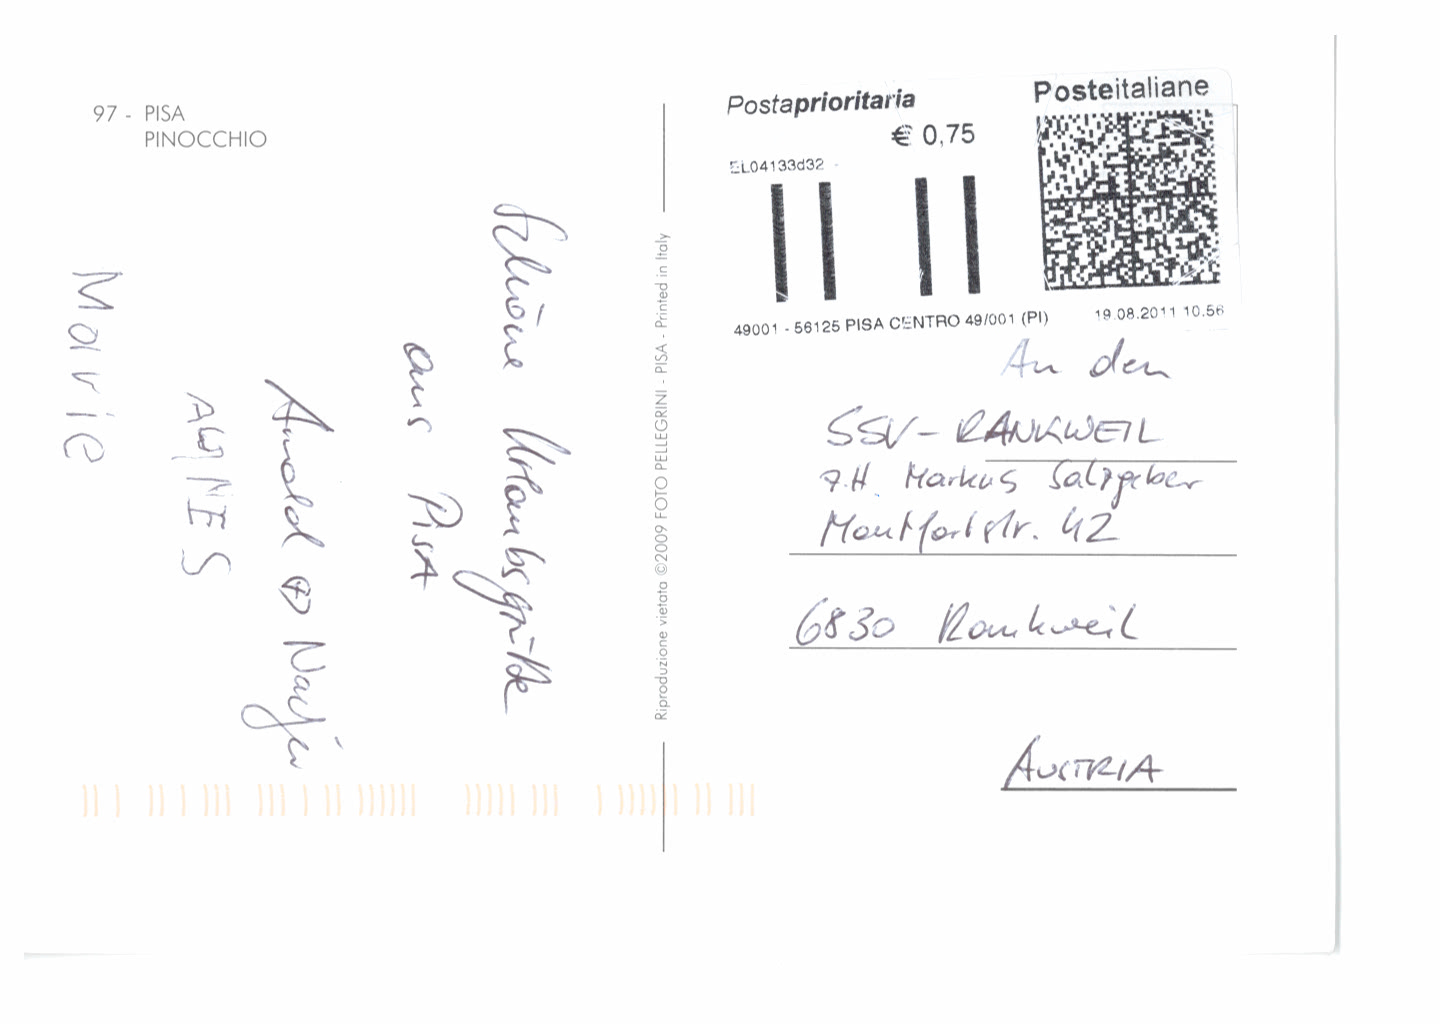 97 - PISA
PINOCCHIO
Schöne Urlaubsgrüße
aus PISA
Arnold
AGNES
Marie
Riproduzione vietata ©2009 FOTO PELLEGRINI - PISA - Printed in Italy
Postaprioritaria
Posteitaliane
€ 0,75
EL04133d32
49001 - 56125 PISA CENTRO 49/001 (PI)
19.08.2011 10.56
An den
SSV - RANKWEIL
z.H. Markus Salzgeber
Montfortstr. 42
6830 Rankweil
AUSTRIA